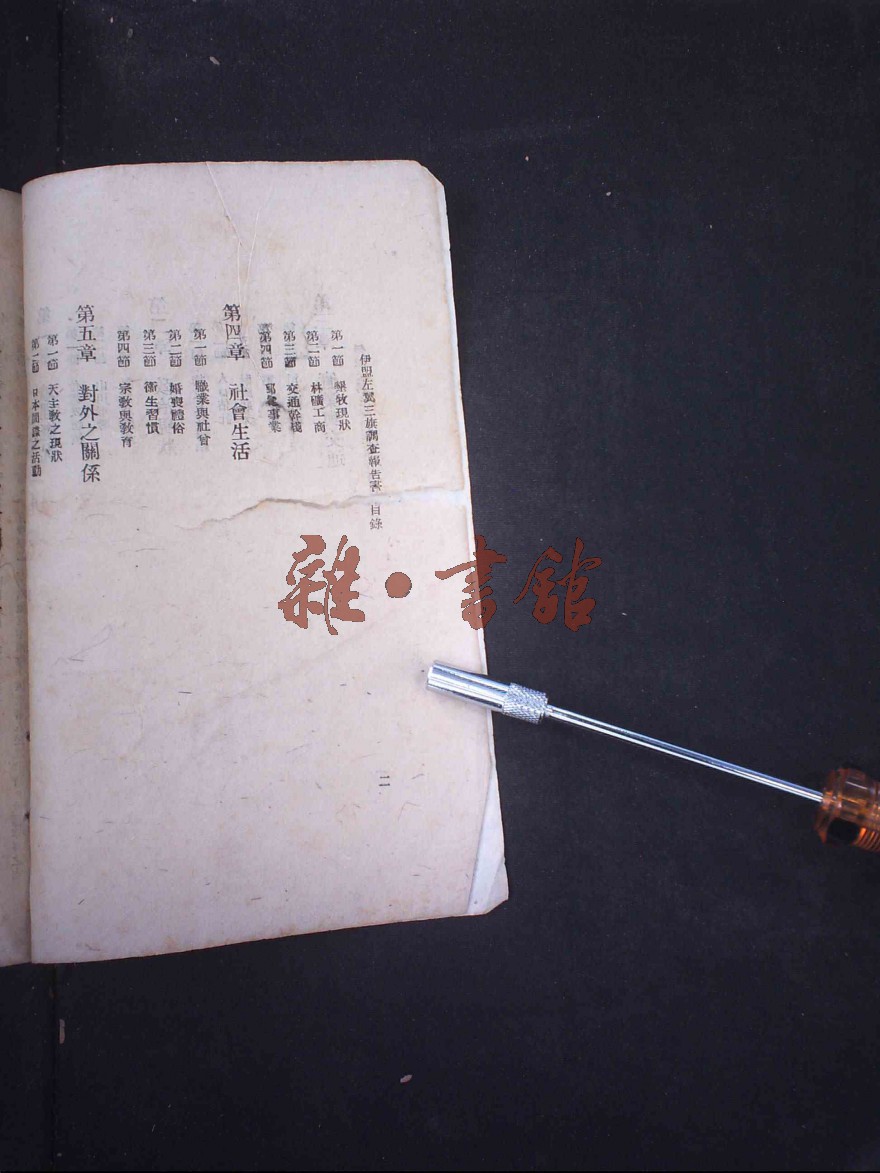 伊盟左翼三旗調查報告書 目錄
第一節 墾牧現狀
第二節 林礦工商
第三節 交通幹綫
第四節 事業
第四章 社會生活
第一節 職業與社會
第二節 婚喪禮俗
第三節 衞生習慣
第四節 宗敎與敎育
第五章 對外之關係
第一節 天主敎之現狀
第二節 日本間諜之活動
二
雜·書館